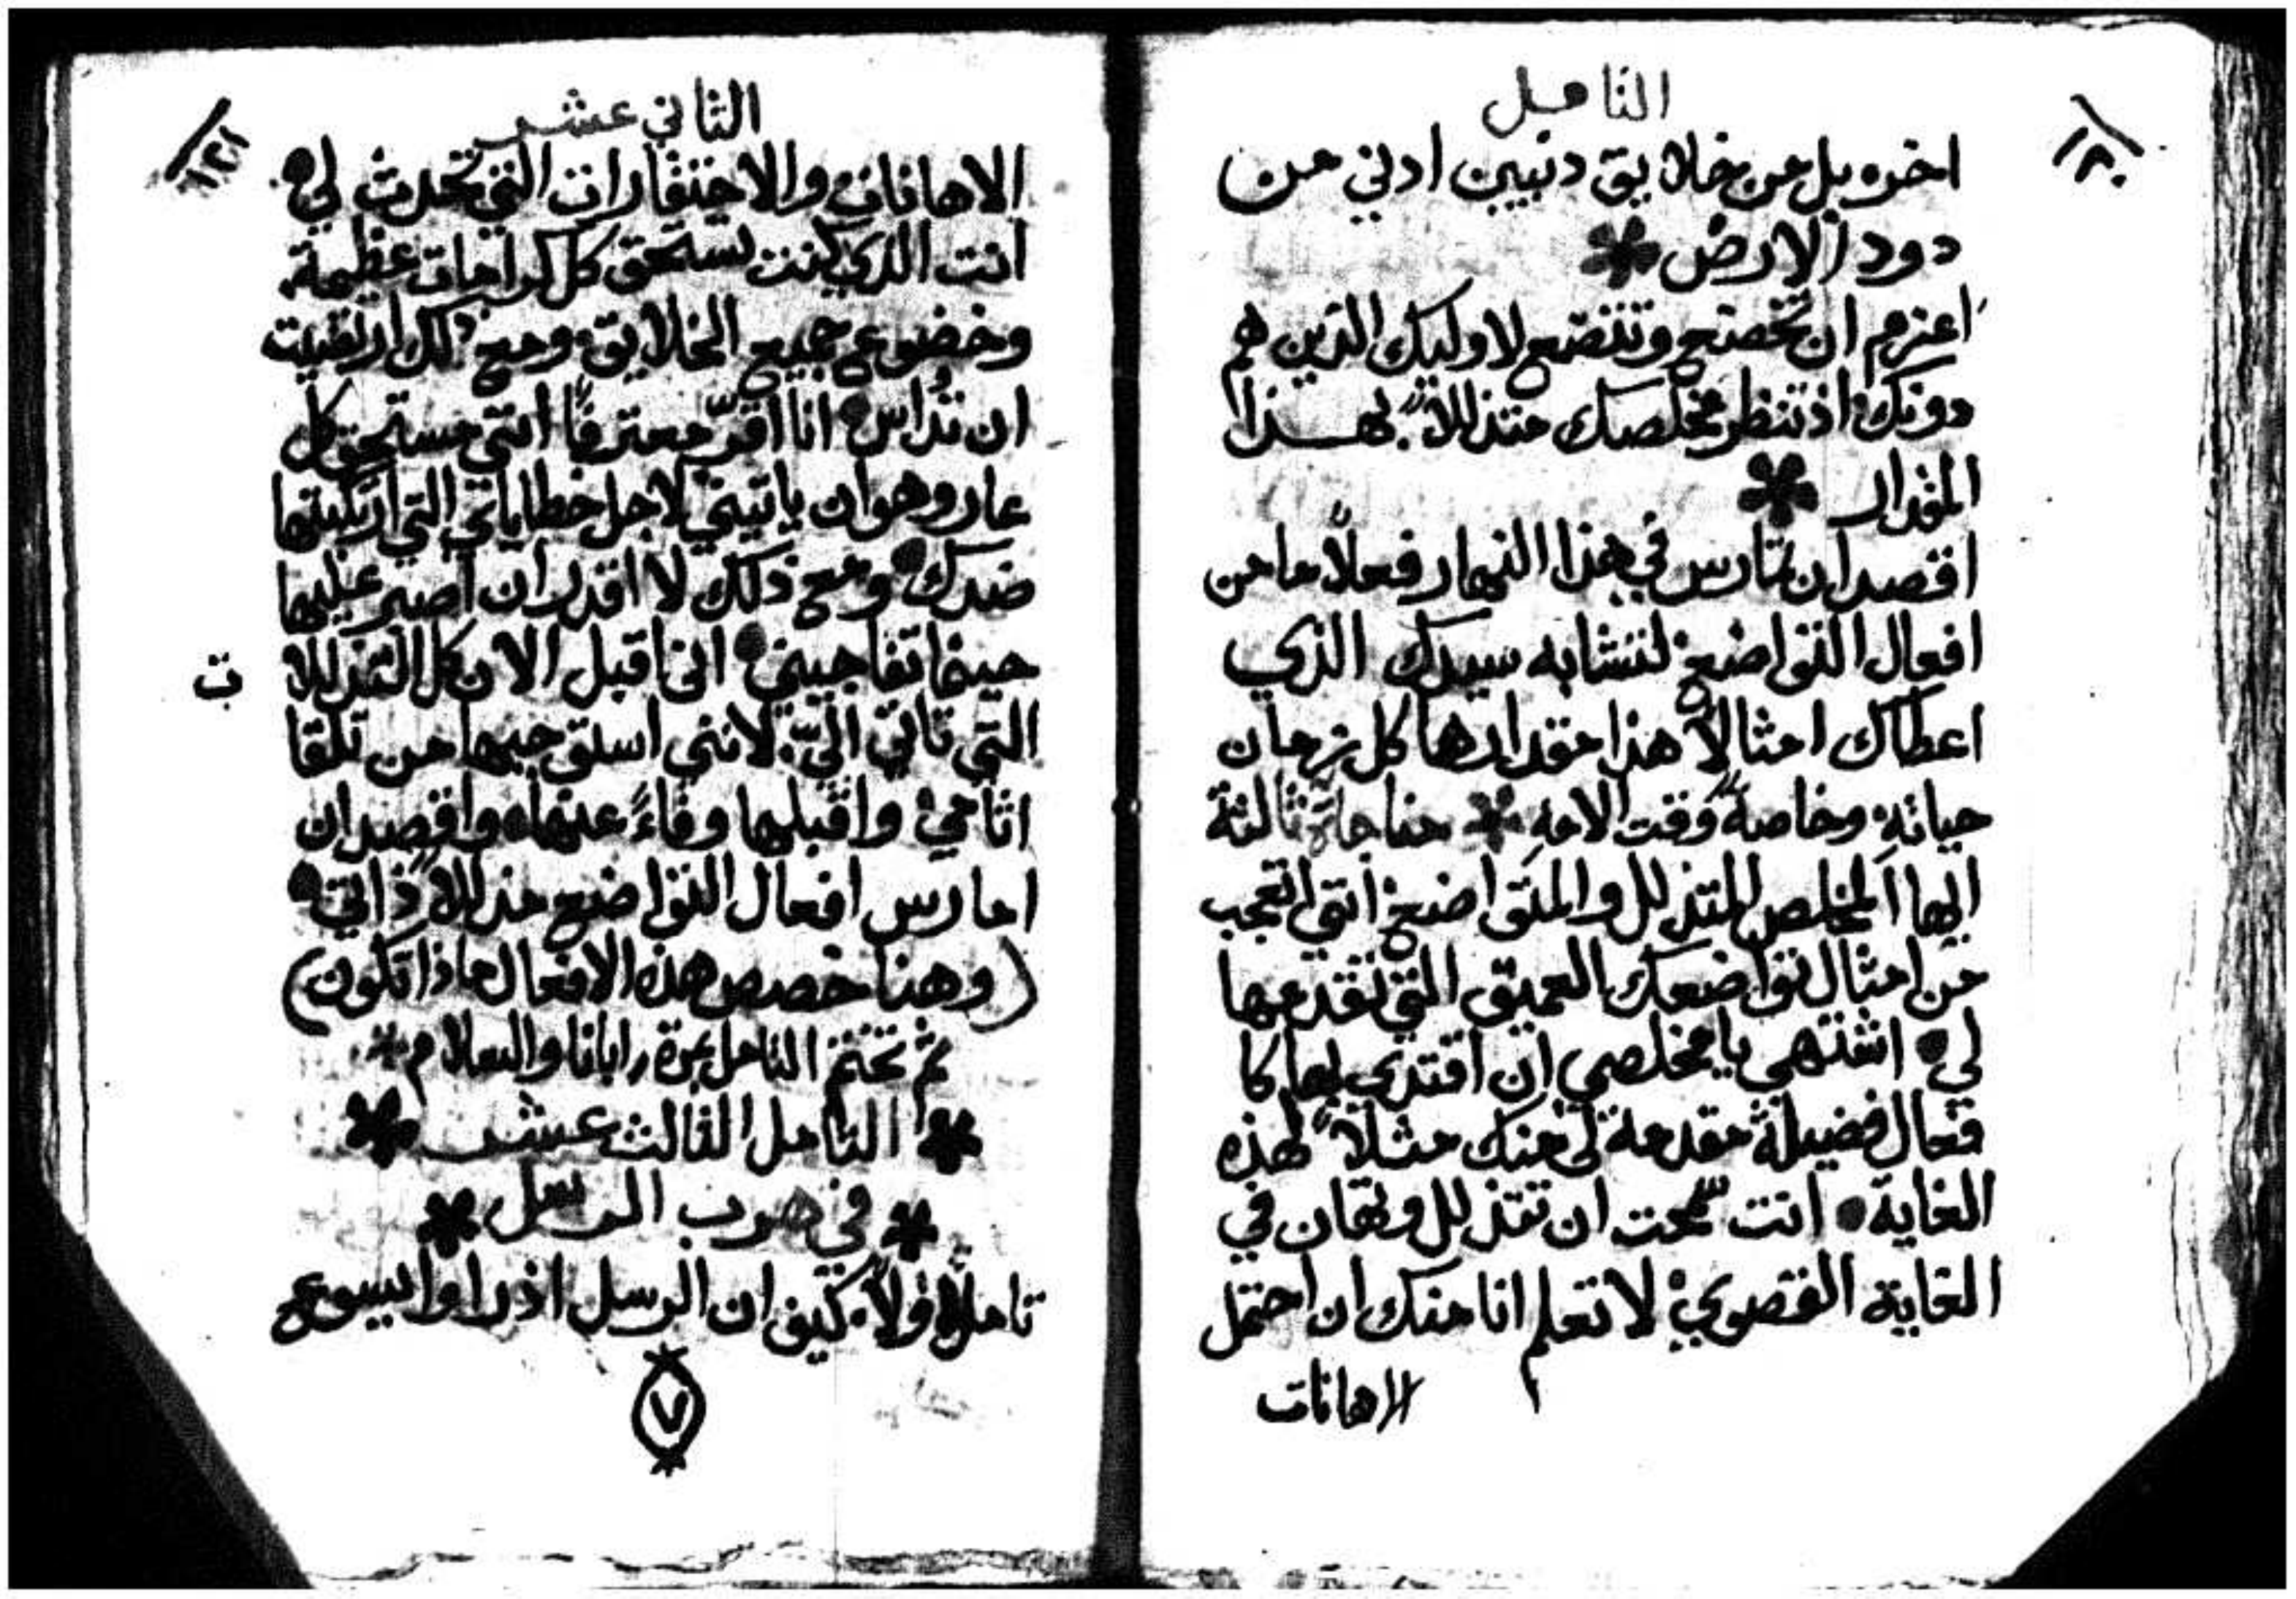 التامل
١٢٠
اخره بل من خلايق دنيين ادني من
دود الارض
اعزم ان تخضع وتتضع لاوليك الذين هم
دونك اذ تنظر مخلصك متذللاً بهذا
المقدار
اقصد ان تمارس في هذا النهار فعلاً ما من
افعال التواضع لتشابه سيدك الذي
اعطاك امثالاً هذا مقدارها كل زمان
حياته وخاصةً وقت الامه مناجاة ثالثة
ايها المخلص المتذلل والمتواضع انني اتعجب
من امثال تواضعك العميق التي تقدمها
لي اشتهي يا مخلصي ان اقتدي بها كا
فعال فضيلة مقدمة لي منك مثلاً لهذه
الغاية انت سمحت ان تتذلل وتهان في
الغاية القصوي لاتعلم انا منك ان احتمل
الاهانات
الثاني عشر
١٢١
الاهانات والاحتقارات التي تحدث لي
انت الذي كنت تستحق كل كرامات عظيمة
وخضوع جميع الخلايق ومع ذلك ارتضيت
ان تُداس انا اقرّ معترفاً انني مستحق كل
عار وهوان ياتيني لاجل خطاياي التي ارتكبتها
ضدك ومع ذلك لا اقدر ان اصبر عليها
حينما تفاجيني انا اقبل الان كل التذللا
ت
التي تاتي اليّ لانني استوجبها من تلقا
اثامي واقبلها وفاءً عنها واقصد ان
امارس افعال التواضع مذللاً ذاتي
(وهنا خصص هذه الافعال ماذا تكون)
ثم تختتم التامل بمرة رابانا والسلام
التامل الثالث عشر
في هرب الرسل
تامل اولاً كيف ان الرسل اذ راوا يسوع
٧